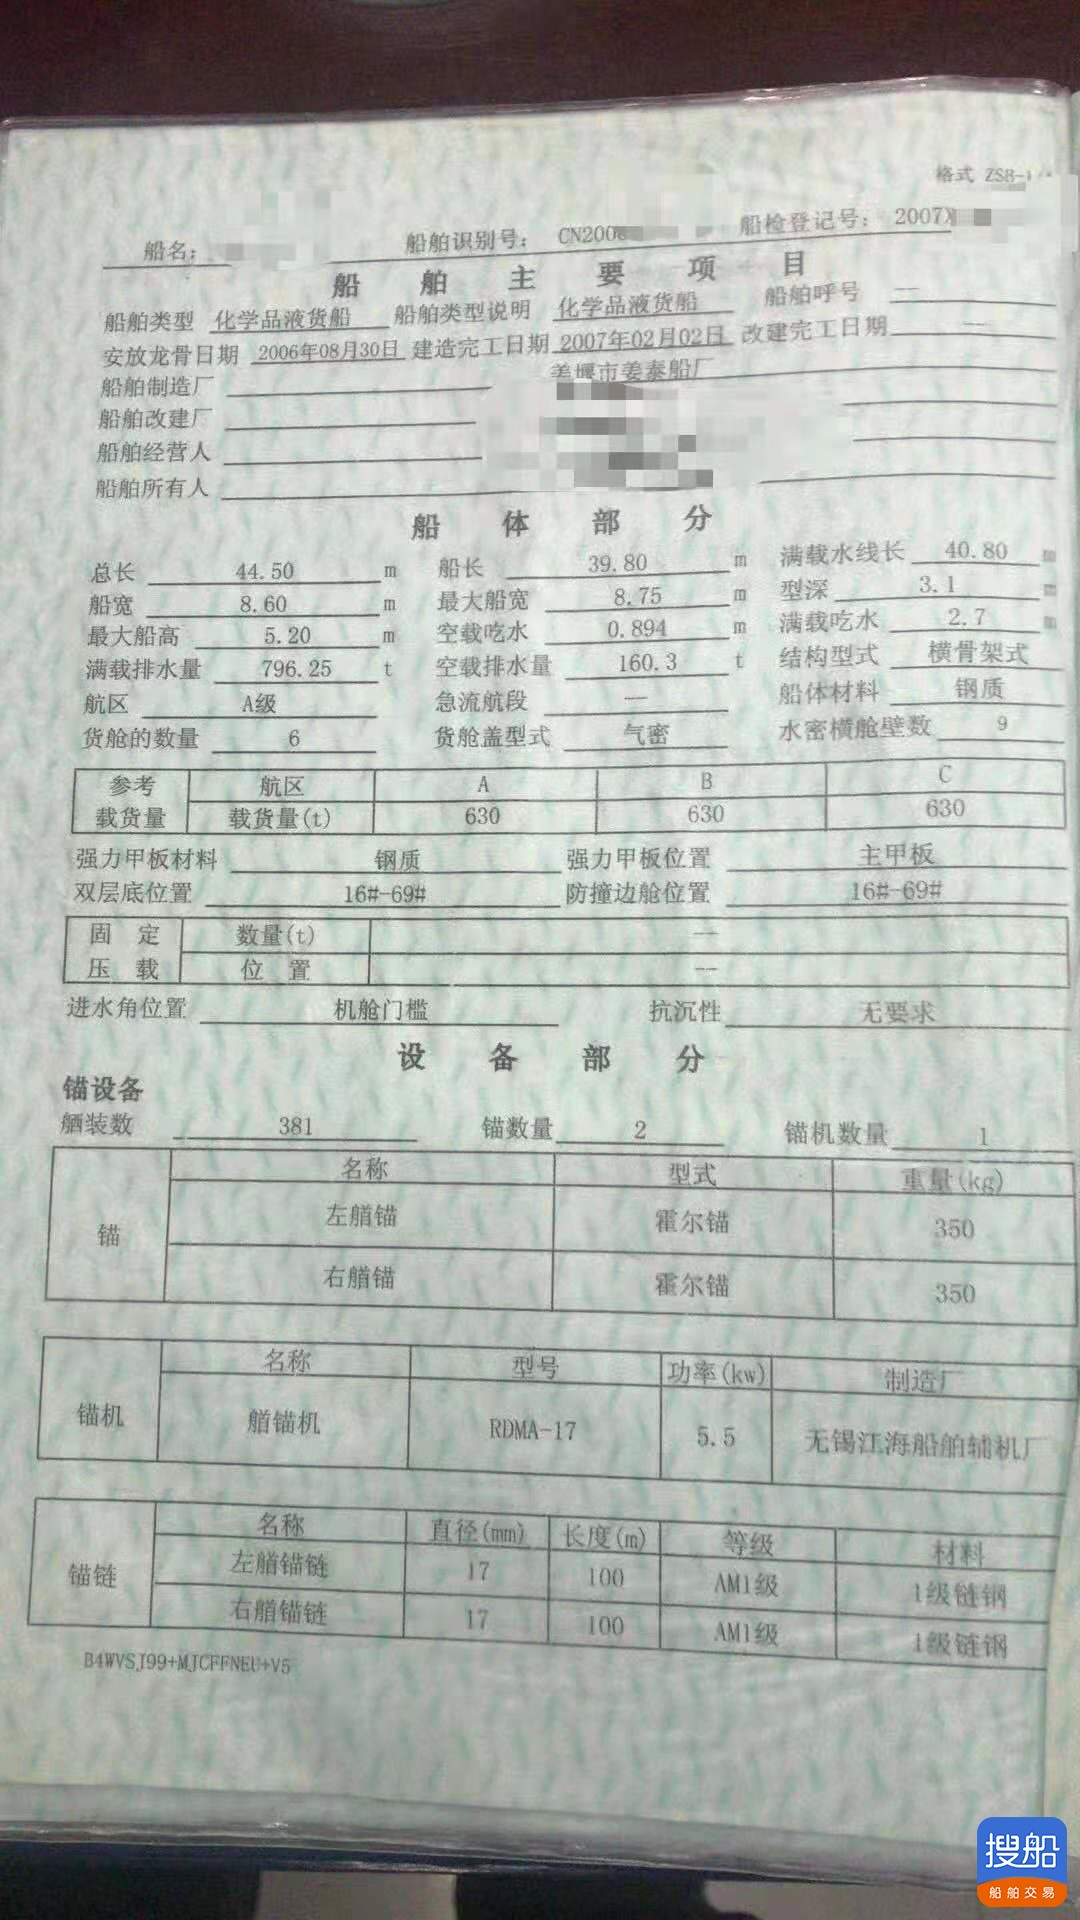 格式 ZS8-1
船名： 船舶识别号： CN200 船检登记号： 2007X
船 舶 主 要 项 目
船舶类型 化学品液货船 船舶类型说明 化学品液货船 船舶呼号 —
安放龙骨日期 2006年08月30日 建造完工日期 2007年02月02日 改建完工日期 —
船舶制造厂 姜堰市姜泰船厂
船舶改建厂
船舶经营人
船舶所有人
船 体 部 分
总长 44.50 m 船长 39.80 m 满载水线长 40.80 m
船宽 8.60 m 最大船宽 8.75 m 型深 3.1 m
最大船高 5.20 m 空载吃水 0.894 m 满载吃水 2.7 m
满载排水量 796.25 t 空载排水量 160.3 t 结构型式 横骨架式
航区 A级 急流航段 — 船体材料 钢质
货舱的数量 6 货舱盖型式 气密 水密横舱壁数 9
参考 航区 A B C
载货量 载货量(t) 630 630 630
强力甲板材料 钢质 强力甲板位置 主甲板
双层底位置 16#-69# 防撞边舱位置 16#-69#
固 定 数量(t) --
压 载 位 置 --
进水角位置 机舱门槛 抗沉性 无要求
设 备 部 分
锚设备
舾装数 381 锚数量 2 锚机数量 1
名称 型式 重量(kg)
锚 左艏锚 霍尔锚 350
右艏锚 霍尔锚 350
名称 型号 功率(kw) 制造厂
锚机 艏锚机 RDMA-17 5.5 无锡江海船舶辅机厂
名称 直径(mm) 长度(m) 等级 材料
锚链 左艏锚链 17 100 AM1级 1级链钢
右艏锚链 17 100 AM1级 1级链钢
B4WVSJ99+MJCFFNEU+V5
搜船
船舶交易